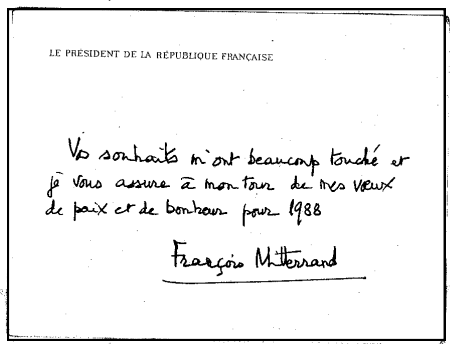 LE PRÉSIDENT DE LA RÉPUBLIQUE FRANÇAISE
Vos souhaits m'ont beaucoup touché et
je vous assure à mon tour de mes vœux
de paix et de bonheur pour 1988
François Mitterrand